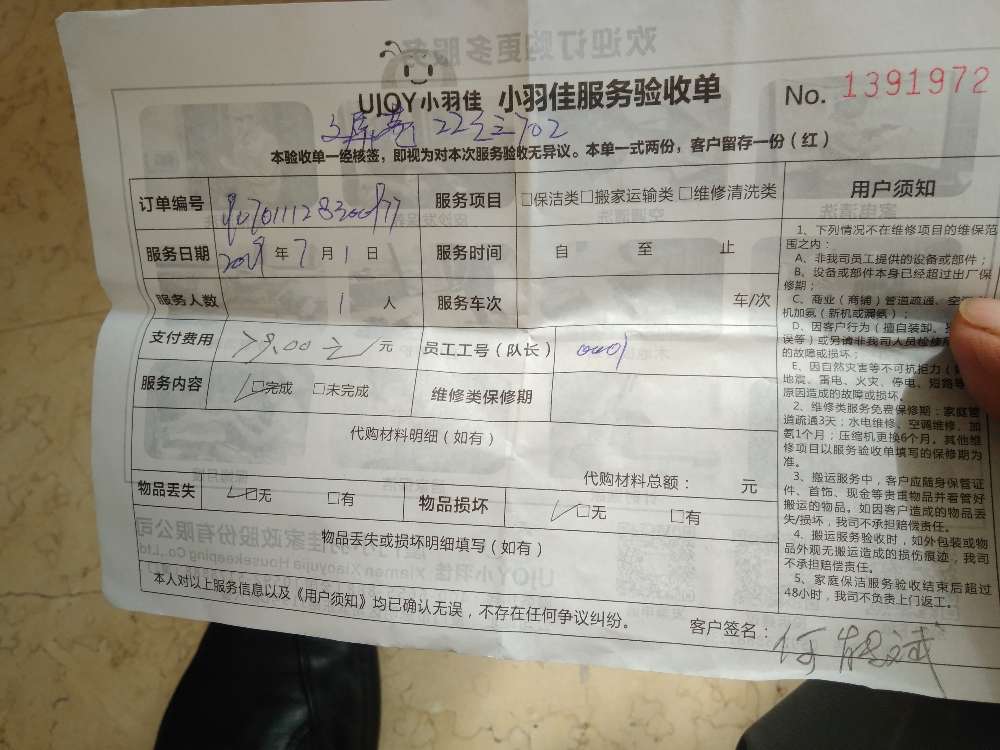 UIOY小羽佳 小羽佳服务验收单 No. 1391972
22之三702
本验收单一经核签，即视为对本次服务验收无异议。本单一式两份，客户留存一份（红）
订单编号 服务项目 □保洁类□搬家运输类 □维修清洗类
服务日期 年 7 月 1 日 服务时间 自 至 止
服务人数 1 人 服务车次 车/次
支付费用 79.00 元 员工工号（队长）
服务内容 □完成 □未完成 维修类保修期
代购材料明细（如有）
代购材料总额： 元
物品丢失 □无 □有 物品损坏 □无 □有
物品丢失或损坏明细填写（如有）
本人对以上服务信息以及《用户须知》均已确认无误，不存在任何争议纠纷。
客户签名：
用户须知
1、下列情况不在维修项目的维保范
围之内：
A、非我司员工提供的设备或部件；
B、设备或部件本身已经超过出厂保
修期；
C、商业（商铺）管道疏通、空
机加氨（新机或漏氨）；
D、因客户行为（擅自装卸、
误等）或另请非我司人员检修
的故障或损坏；
E、因自然灾害等不可抗拒力（
地震、雷电、火灾、停电、短路等
原因造成的故障或损坏。
2、维修类服务免费保修期：家庭管
道疏通3天；水电维修、空调维修、加
氨1个月；压缩机更换6个月。其他维
修项目以服务验收单填写的保修期为
准。
3、搬运服务中，客户应随身保管证
件、首饰、现金等贵重物品并看管好
搬运的物品。如因客户造成的物品丢
失/损坏，我司不承担赔偿责任。
4、搬运服务验收时，如外包装或物
品外观无搬运造成的损伤痕迹，我司
不承担赔偿责任。
5、家庭保洁服务验收结束后超过
48小时，我司不负责上门返工。